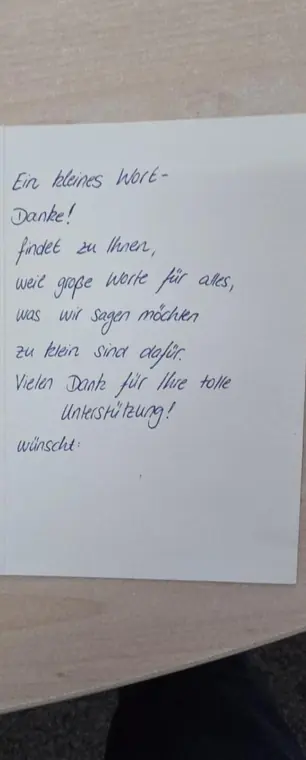 Ein kleines Wort -
Danke!
findet zu Ihnen,
weil große Worte für alles,
was wir sagen möchten
zu klein sind dafür.
Vielen Dank für Ihre tolle
Unterstützung!
wünscht: